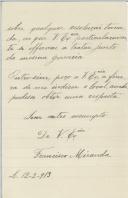 sobre qualquer resolução toma-
da, ou por V. Exª particularmen-
te e offerecer a tratar junto
da mesma gerencia
Outro sim, peço a V. Exª a fine-
za de me indicar o local, aonde
poderei obter uma resposta.
Sem outro assumpto
De V. Exª
Francisco Miranda
12-2-913